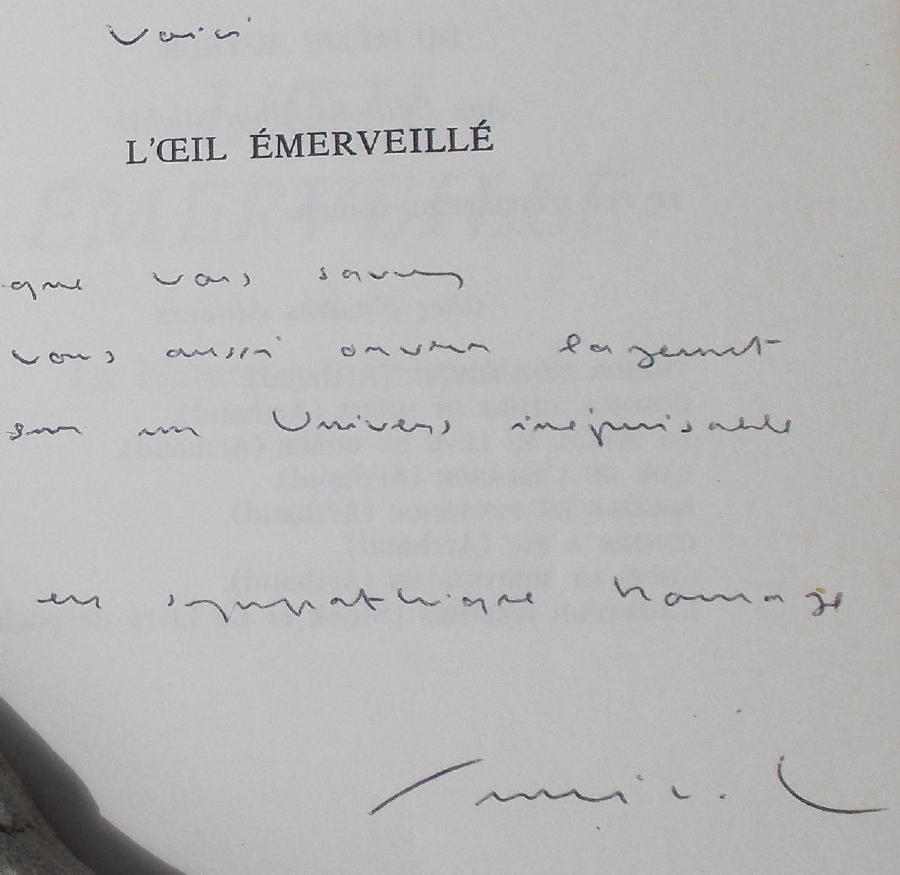 Voici
L'ŒIL ÉMERVEILLÉ
que vous savez
vous aussi ouvrir largement
sur un Univers inépuisable
en sympathique hommage